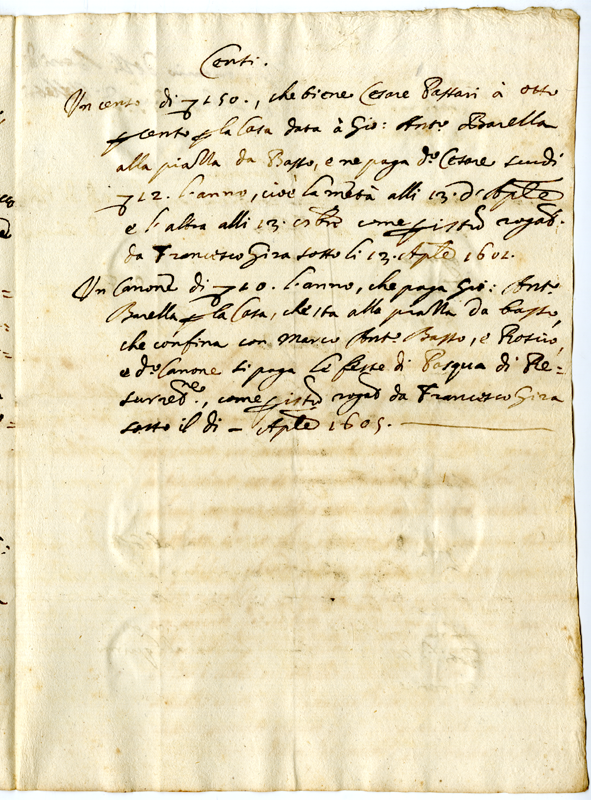 Censi.
Un censo di ▽ 150., che tiene Cesare Passari à otto
p cento p la Casa data à Gio: Ant.o Barella
alla piassa da Basso, e ne paga d.o Cesare scudi
▽ 12. l'anno, cioè la metà alli 13. d' Aple
e l'altra alli 13. come p istro rogato.
da Francesco Gira sotto li 13. Aple 1601.
Un Canone di ▽ 10. l'anno, che paga Gio: Ant.o
Barella p la Casa, che sta alla piassa da basso,
che confina con Marco Ant.o Basso, e
e d.o Canone si paga le feste di Pasqua di Re=
surret.ne, come p istro rogato da Francesco Gira
sotto il di – Aple 1605.